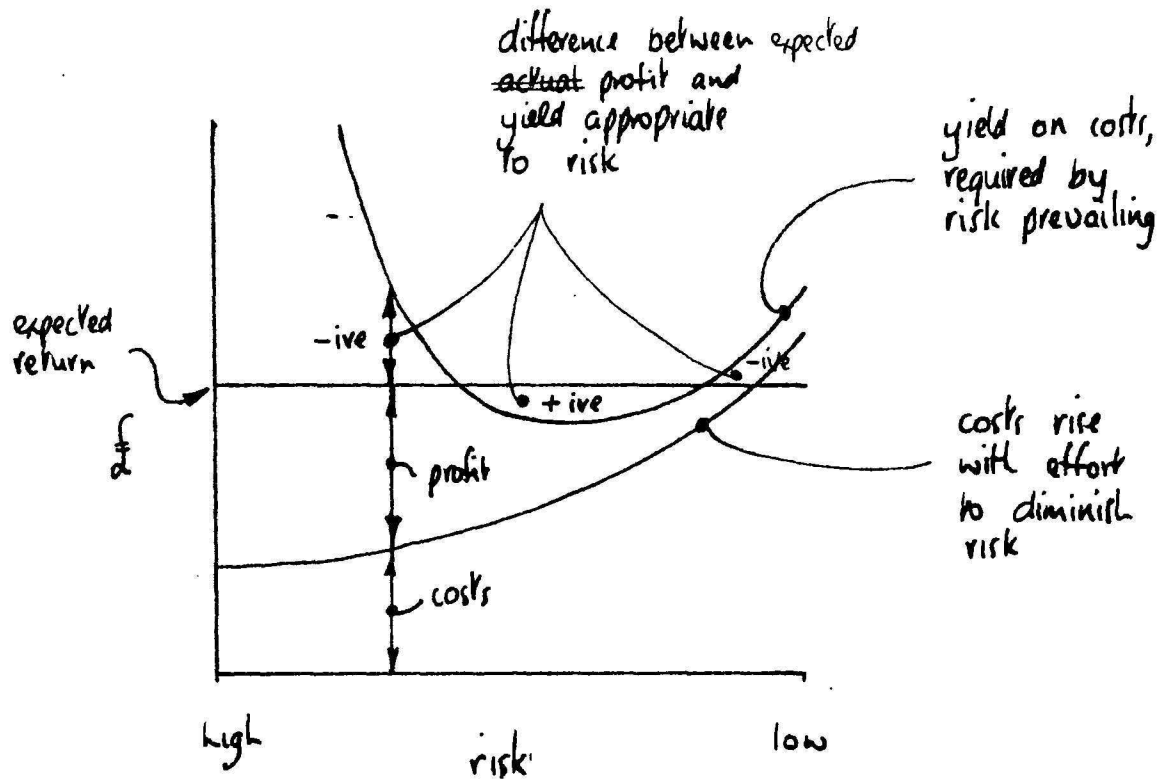 difference between expected
actual profit and
yield appropriate
to risk
yield on costs,
required by
risk prevailing
expected
return
-ive
+ ive
-ive
£
profit
costs rise
with effort
to diminish
risk
costs
high
risk
low